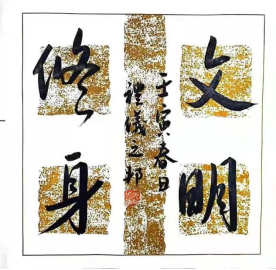 文明
修身
壬寅春日
禮儀之邦